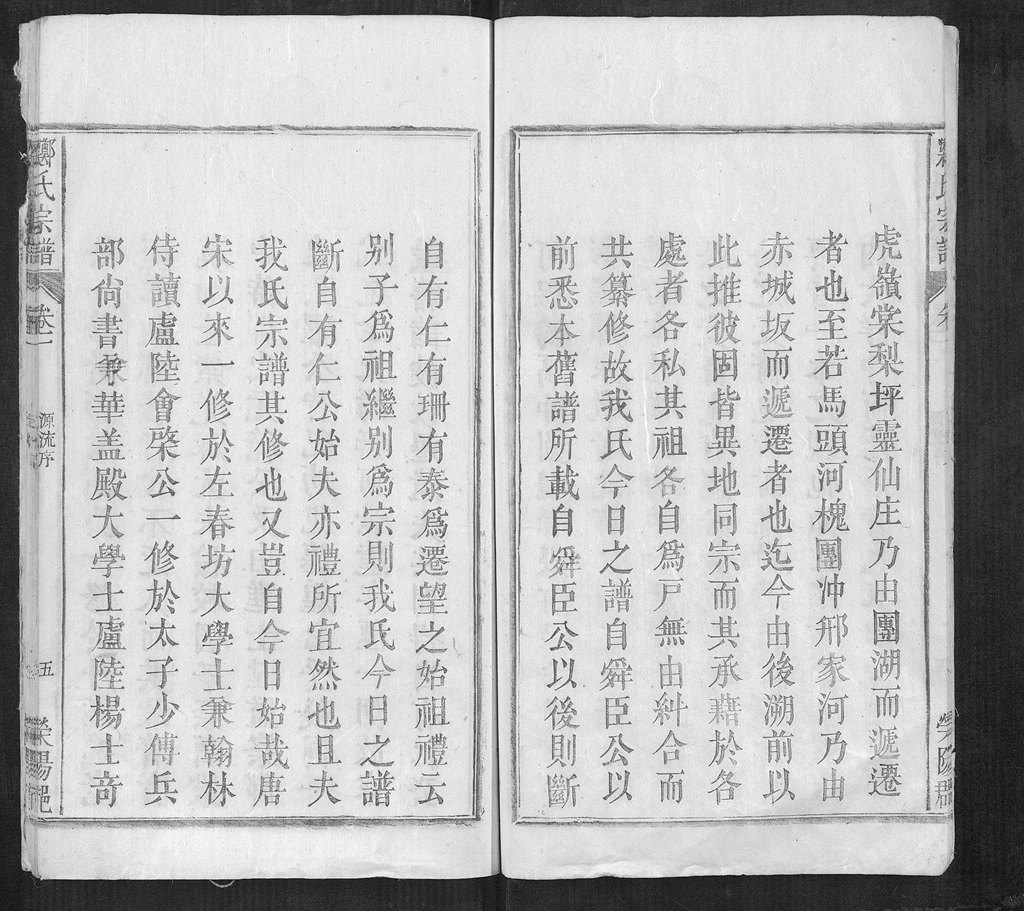 虎嶺棠梨坪靈仙庄乃由團湖而遞遷
者也至若馬頭河槐團冲邢家河乃由
赤城坂而遞遷者也迄今由後溯前以
此推彼固皆異地同宗而其承藉於各
處者各私其祖各自爲戶無由糾合而
共纂修故我氏今日之譜自舜臣公以
前悉本舊譜所載自舜臣公以後則斷
自有仁有珊有泰爲遷望之始祖禮云
别子爲祖繼别爲宗則我氏今日之譜
斷自有仁公始夫亦禮所宜然也且夫
我氏宗譜其修也又豈自今日始哉唐
宋以來一修於左春坊大學士兼翰林
侍讀盧陸會棨公一修於太子少傅兵
部尙書兼華盖殿大學士盧陸楊士竒
鄭氏宗譜
卷一
源流序
五